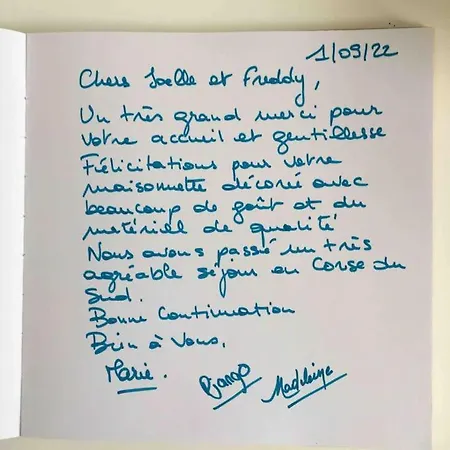 1/09/22
Chers Joelle et Freddy,
Un très grand merci pour
votre accueil et gentillesse
Félicitations pour votre
maisonnette décorée avec
beaucoup de goût et du
matériel de qualité
Nous avons passé un très
agréable séjour en Corse du
Sud.
Bonne Continuation
Bien à Vous,
Marie. Django Madeleine